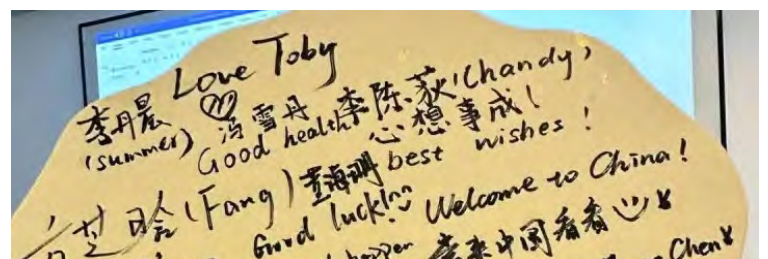 Love Toby
李丹晨 冯雪丹 李陈荻(Chandy)
(summer) Good health 心想事成!
best wishes!
晗(Fang) 黄海明
Good luck!
Welcome to China!
来中国看看
Chen